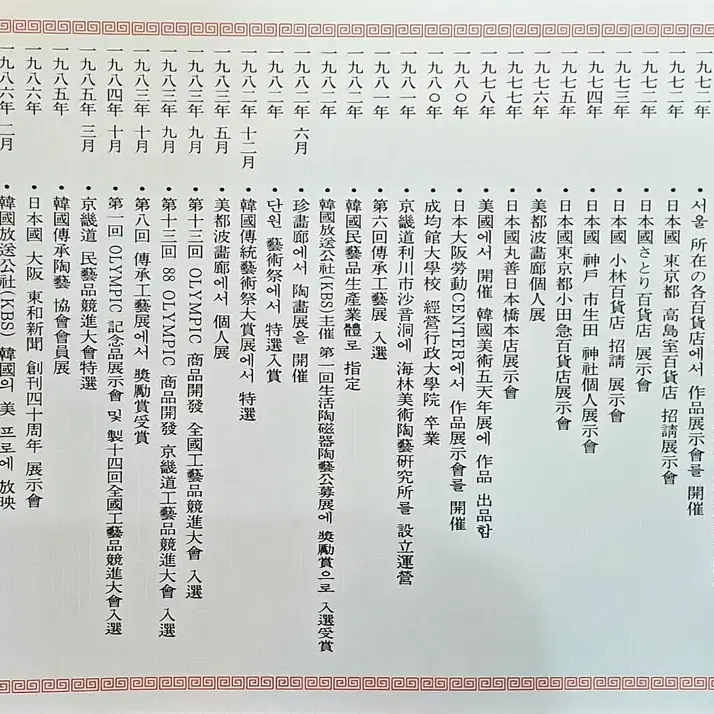 一九七二年 • 서울 所在の各百貨店에서 作品展示會를 開催
一九七二年 • 日本國 東京都 高島室百貨店 招請展示會
一九七二年 • 日本國さとり百貨店 展示會
一九七三年 • 日本國 小林百貨店 招請 展示會
一九七四年 • 日本國 神戶 市生田 神社個人展示會
一九七五年 • 日本國東京都小田急百貨店展示會
一九七六年 • 美都波畵廊個人展
一九七七年 • 日本國丸善日本橋本店展示會
一九七八年 • 美國에서 開催 韓國美術五天年展에 作品 出品함
一九八〇年 • 日本大阪勞動CENTER에서 作品展示會를 開催
一九八〇年 • 成均館大學校 經營行政大學院 卒業
一九八一年 • 京畿道利川市沙音洞에 海林美術陶藝硏究所를 設立運營
一九八一年 • 第六回傳承工藝展 入選
一九八二年 • 韓國民藝品生產業體로 指定
一九八二年 • 韓國放送公社(KBS)主催 第一回生活陶磁器陶藝公募展에 獎勵賞으로 入選受賞
一九八二年 六月 • 珍畵廊에서 陶畵展을 開催
一九八二年 • 단원 藝術祭에서 特選入賞
一九八二年 十二月 • 韓國傳統藝術祭大賞展에서 特選
一九八三年 五月 • 美都波畵廊에서 個人展
一九八三年 九月 • 第十三回 OLYMPIC 商品開發 全國工藝品競進大會 入選
一九八三年 九月 • 第十三回 88 OLYMPIC 商品開發 京畿道工藝品競進大會 入選
一九八三年 十月 • 第八回 傳承工藝展에서 獎勵賞受賞
一九八四年 十月 • 第一回 OLYMPIC 記念品展示會 및 製十四回全國工藝品競進大會入選
一九八五年 三月 • 京畿道 民藝品競進大會特選
一九八五年 • 韓國傳承陶藝 協會會員展
一九八六年 • 日本國 大阪 東和新聞 創刊四十周年 展示會
一九八六年 二月 • 韓國放送公社(KBS) 韓國의 美 프로에 放映